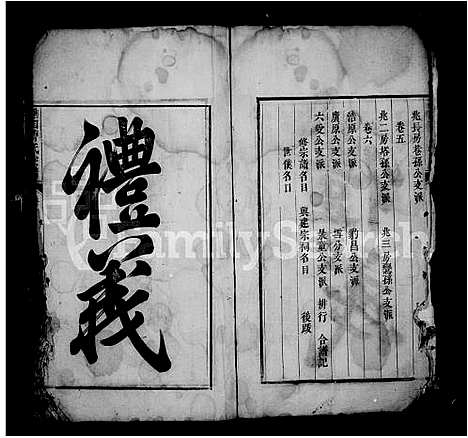 兆長房卷孫公支派
卷五
兆二房塔孫公支派 兆三房巒孫公支派
卷六
浩原公支派 豹昌公支派
廣原公支派 雪分支派
六愛公支派 景童公支派 排行 合譜記
修宗譜名目 與建宗祠名目 後跋
世後名目
禮義
FamilySearch